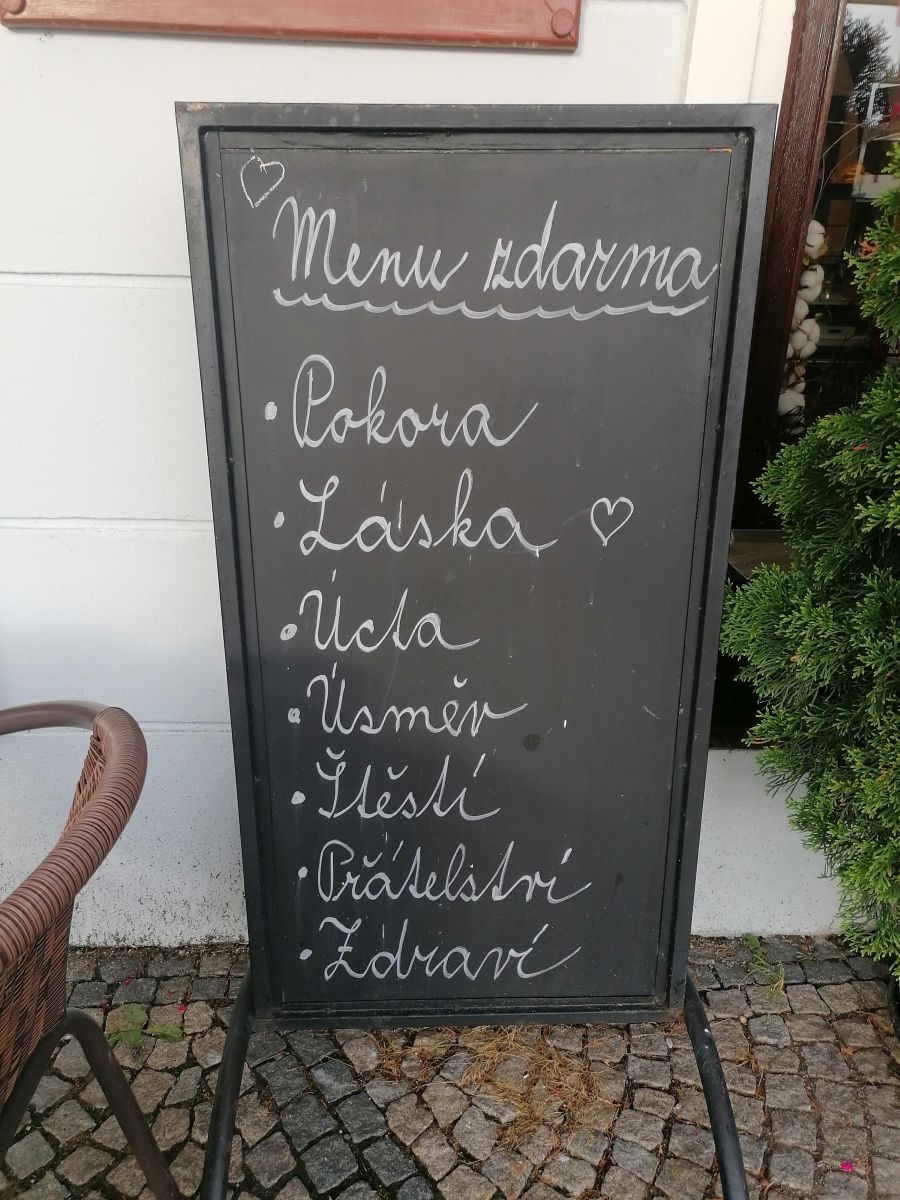 Menu zdarma
• Pokora
• Láska ♡
• Úcta
• Úsměv
• Štěstí
• Přátelství
• Zdraví